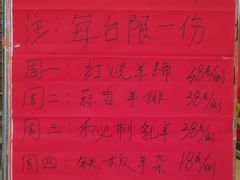 注：每台限一份
周一：红烧羊蹄 38元/例
周二：蒜香羊排 38元/例
周三：秘制乳羊 38元/例
周四：铁板羊杂 18元/例